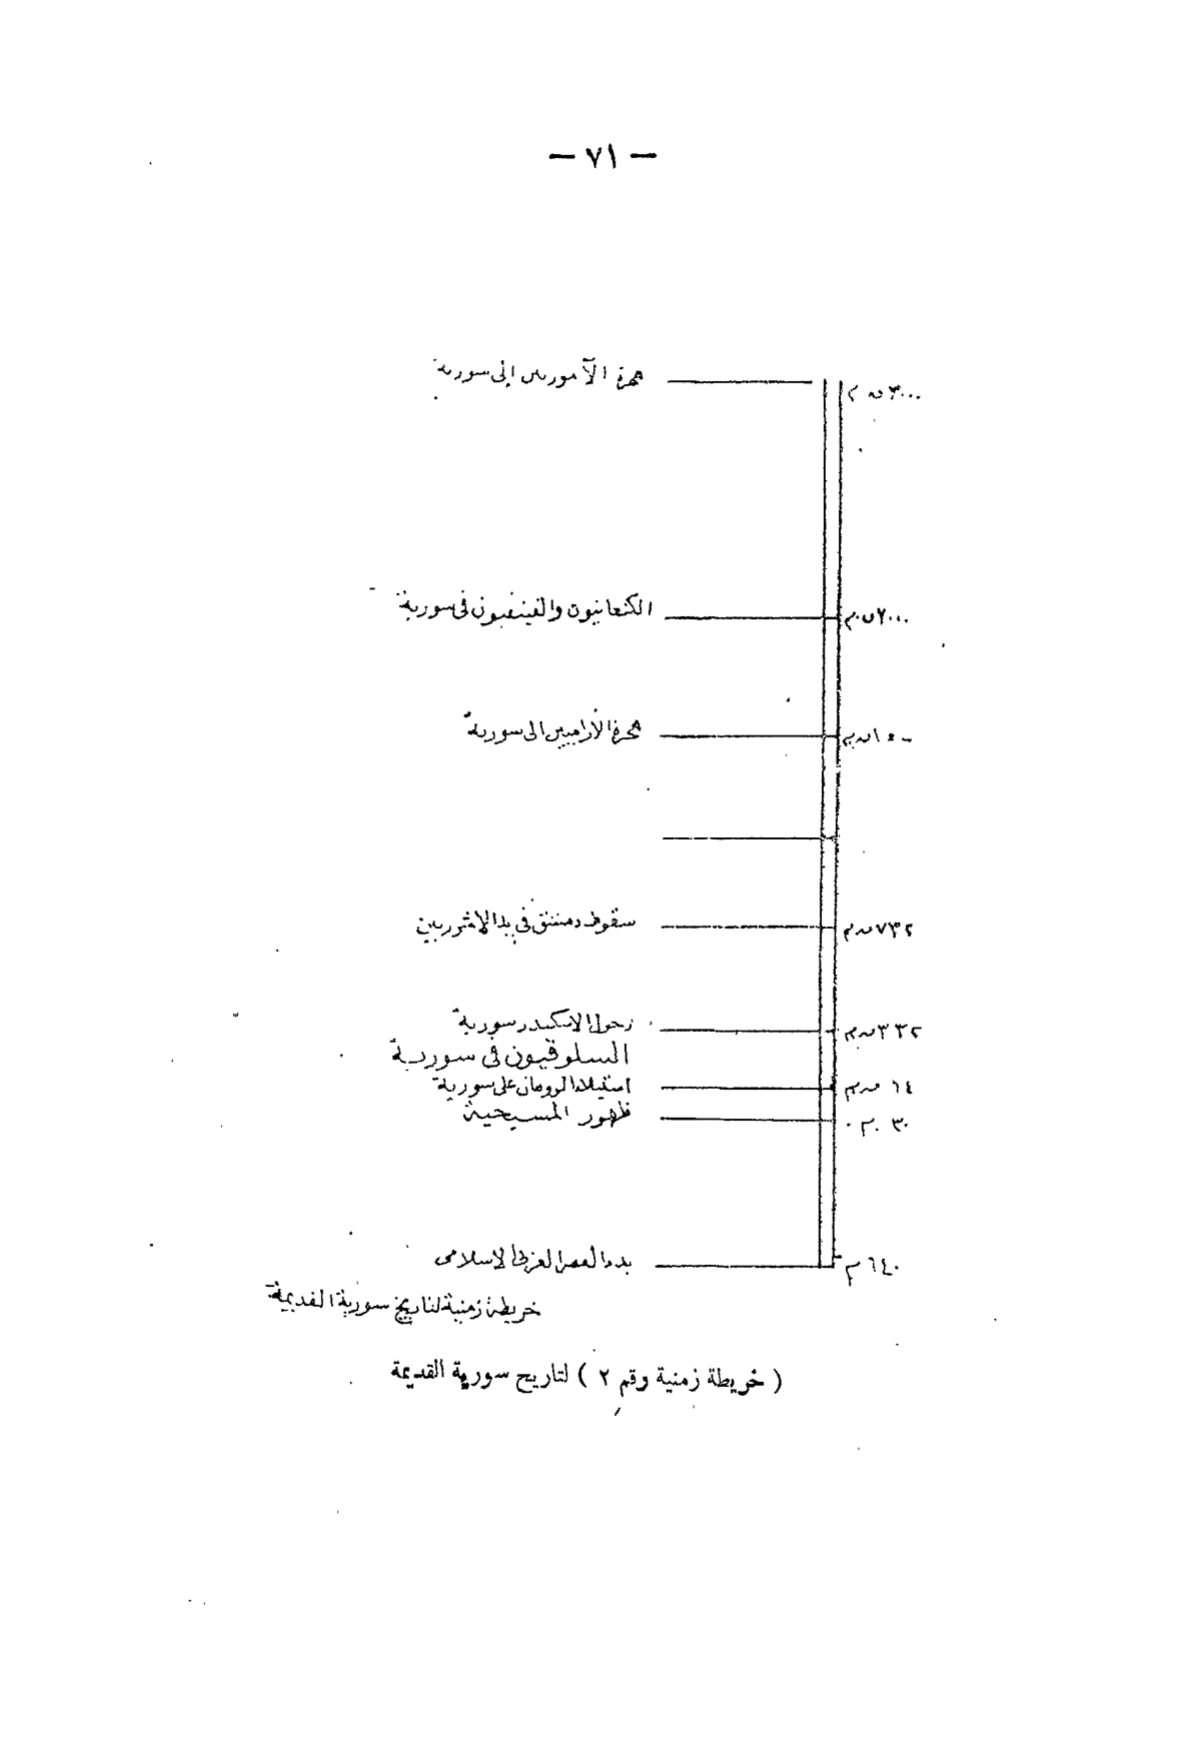 — ٧١ —
٣٠٠٠ ق م هجرة الآموريين إلى سورية
٢٠٠٠ ق.م الكنعانيون والفينيقيون في سورية
١٥٠٠ ق.م هجرة الآراميين الى سورية
٧٣٢ ق.م سقوط دمشق في يد الاشوريين
٣٣٢ ق.م دخول الاسكندر سورية
السلوقيون في سورية
٦٤ ق.م استيلاء الرومان على سورية
٣٠ م. ظهور المسيحية
٦٤٠ م بدء العصر العربي الاسلامى
خريطة زمنية لتاريخ سورية القديمة
( خريطة زمنية رقم ٢ ) لتاريخ سورية القديمة